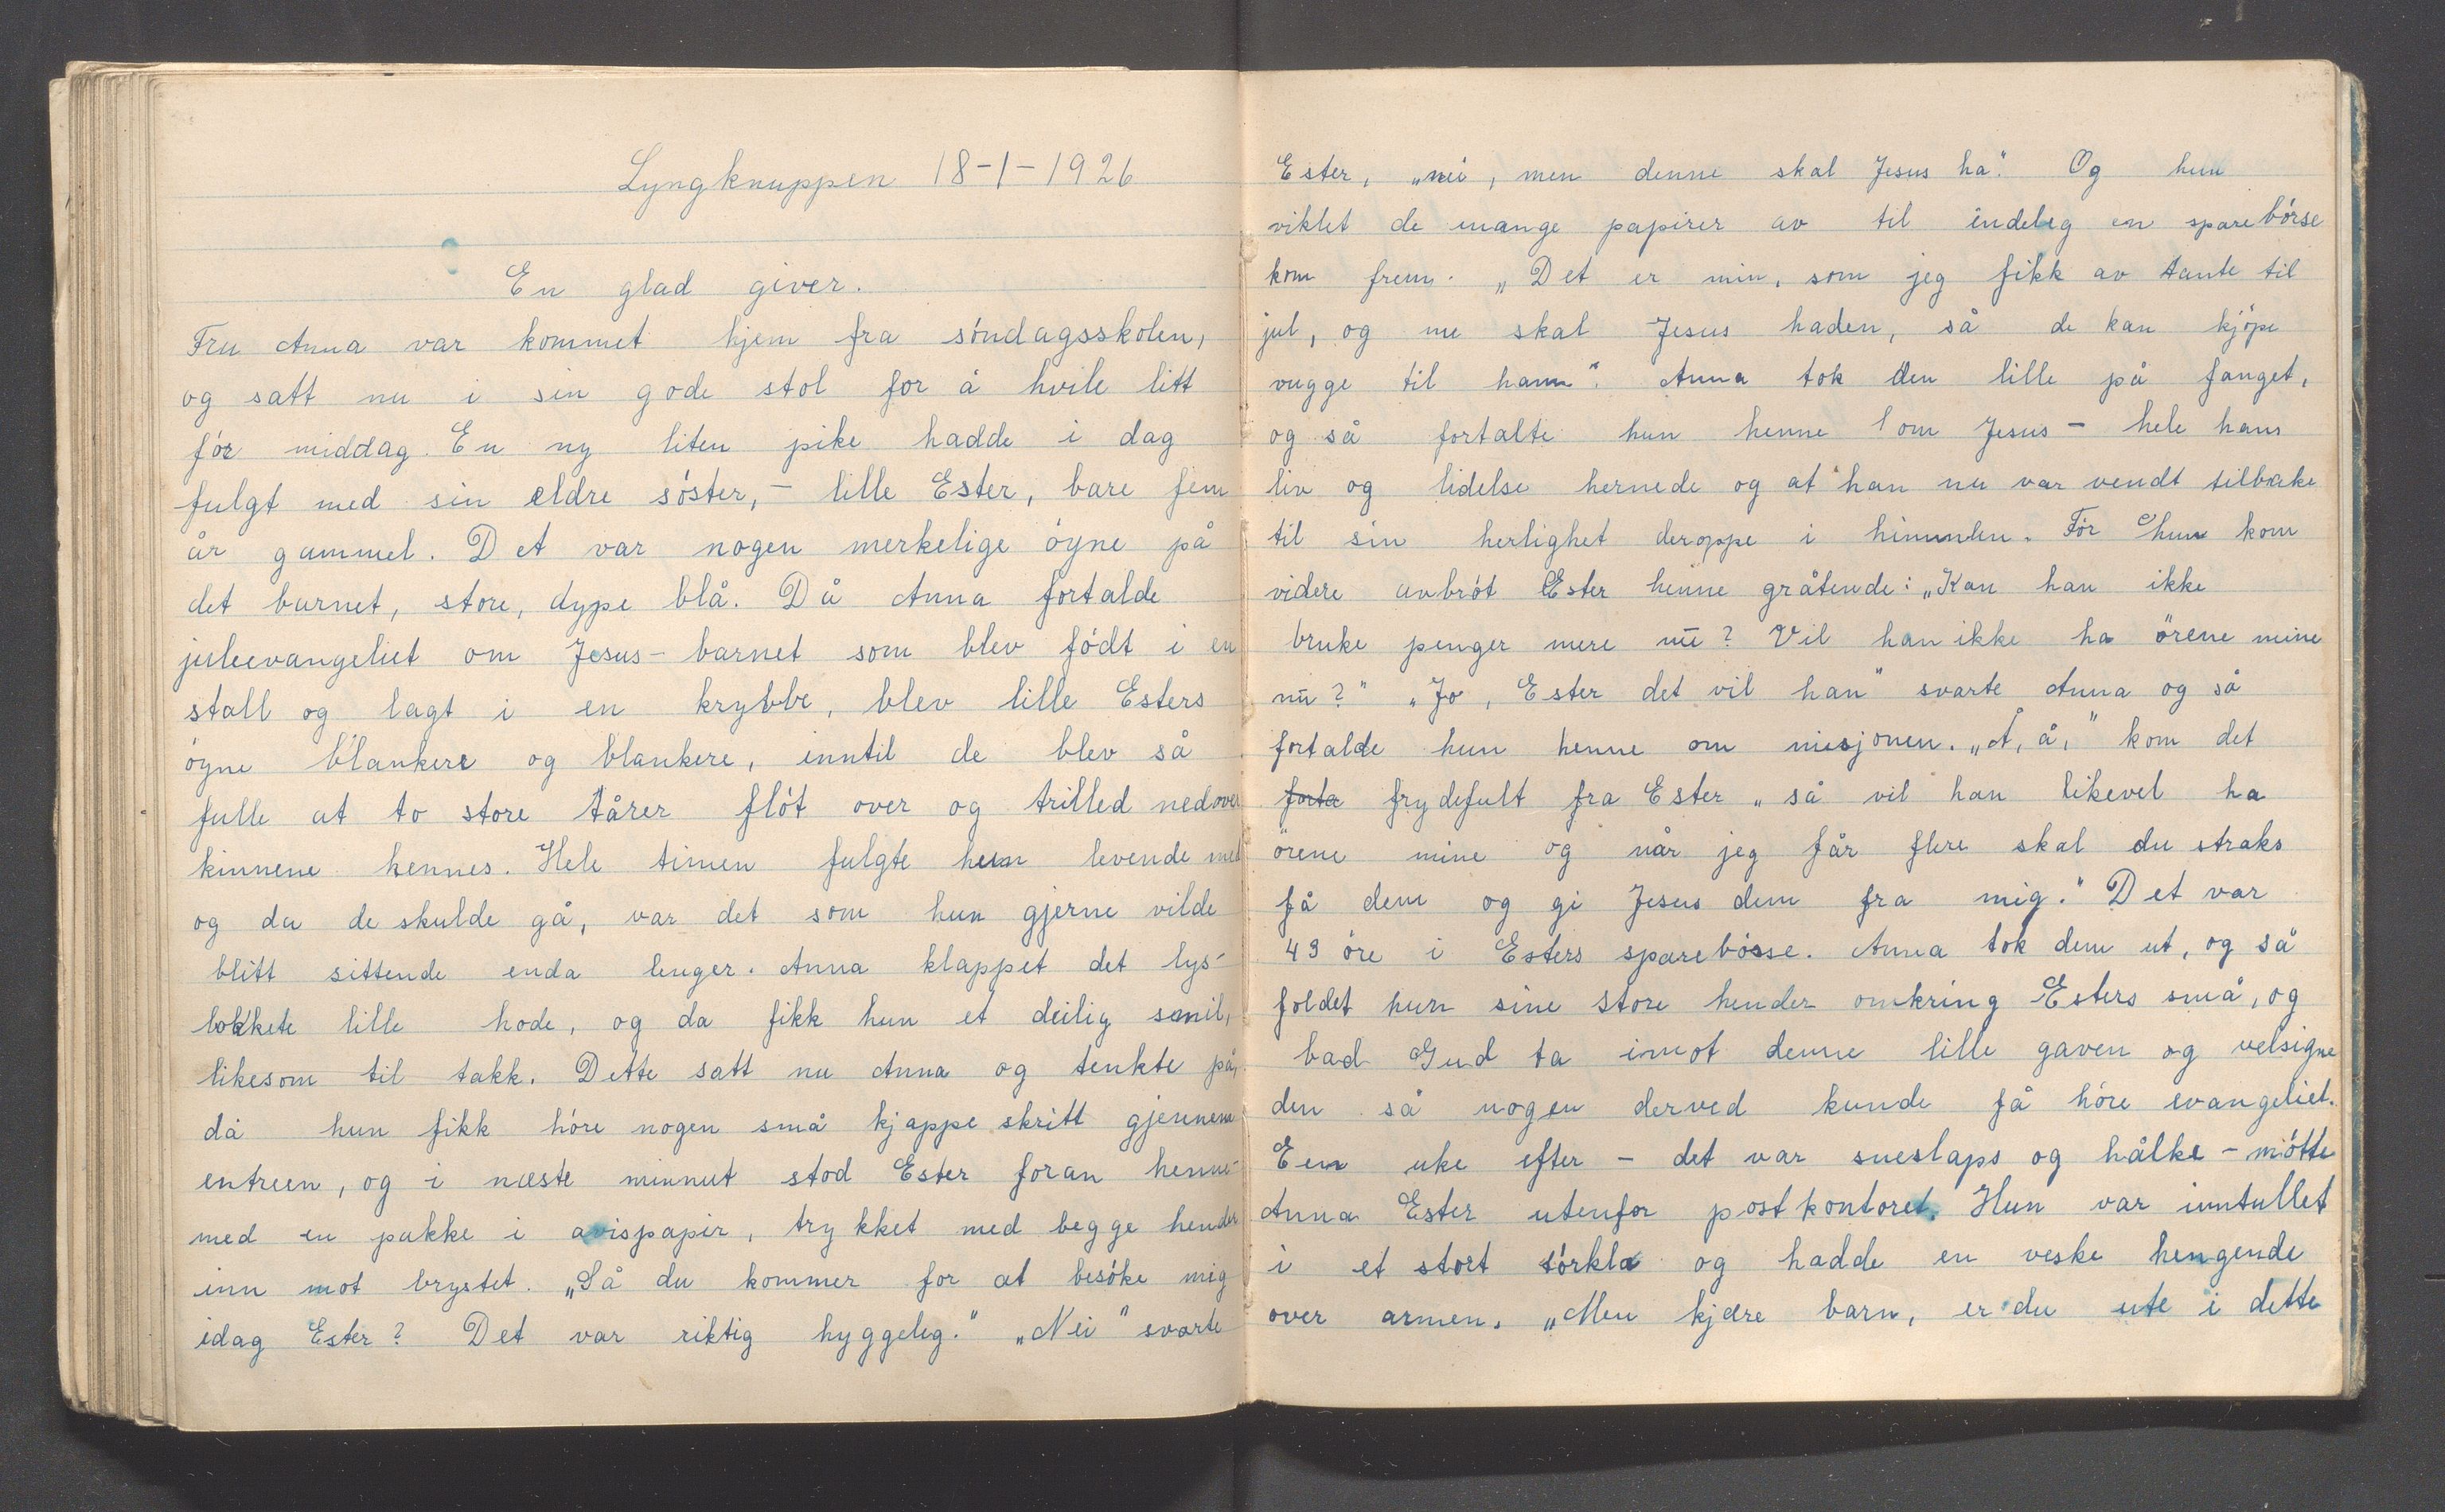 Lyngknuppen 18-1-1926
En glad giver.
Fru Anna var kommet hjem fra söndagsskolen,
og satt nu i sin gode stol for å hvile litt
för middag. En ny liten pike hadde i dag
fulgt med sin eldre söster, - lille Ester, bare fem
år gammel. Det var nogen merkelige öyne på
det barnet, store, dype blå. Då Anna fortalde
juleevangeliet om Jesus-barnet som blev födt i en
stall og lagt i en krybbe, blev lille Esters
öyne blankere og blankere, inntil de blev så
fulle at to store tårer flöt over og trilled nedover
kinnene hennes. Hele timen fulgte hun levende med
og da de skulde gå, var det som hun gjerne vilde
blitt sittende enda lenger. Anna klappet det lys-
lokkete lille hode, og da fikk hun et deilig smil,
likesom til takk. Dette satt nu Anna og tenkte på,
då hun fikk höre nogen små kjappe skritt gjennem
entreen, og i næste minnut stod Ester foran henne-
med en pakke i avispapir, trykket med begge hender
inn mot brystet. „Så du kommer for at besöke mig
idag Ester? Det var riktig hyggeleg." „Nei" svarte
Ester, „nei, men denne skal Jesus ha". Og hun
viklet de mange papirer av til endeleg en sparebörse
kom frem. „Det er min, som jeg fikk av tante til
jul, og nu skal Jesus haden, så de kan kjöpe
vugge til ham". Anna tok den lille på fanget,
og så fortalte hun henne om Jesus - hele hans
liv og lidelse hernede og at han nu var vendt tilbake
til sin herlighet deroppe i himmlen. För hun kom
videre avbröt Ester henne gråtende: „Kan han ikke
bruke penger mere nu? Vil han ikke ha örene mine
nu?" „Jo, Ester det vil han" svarte Anna og så
fortalde hun henne om misjonen. „Å, å," kom det
forta frydefult fra Ester „så vil han likevel ha
örene mine og når jeg får flere skal du straks
få dem og gi Jesus dem fra mig." Det var
43 öre i Esters sparebösse. Anna tok dem ut, og så
foldet hun sine store hender omkring Esters små, og
bad Gud ta imot denne lille gaven og velsigne
den så nogen derved kunde få höre evangeliet.
Een uke efter - det var sneslaps og hålke - mötte
Anna Ester utenfor postkontoret. Hun var inntullet
i et stort törklæ og hadde en veske hengende
over armen. „Men kjære barn, er du ute i dette